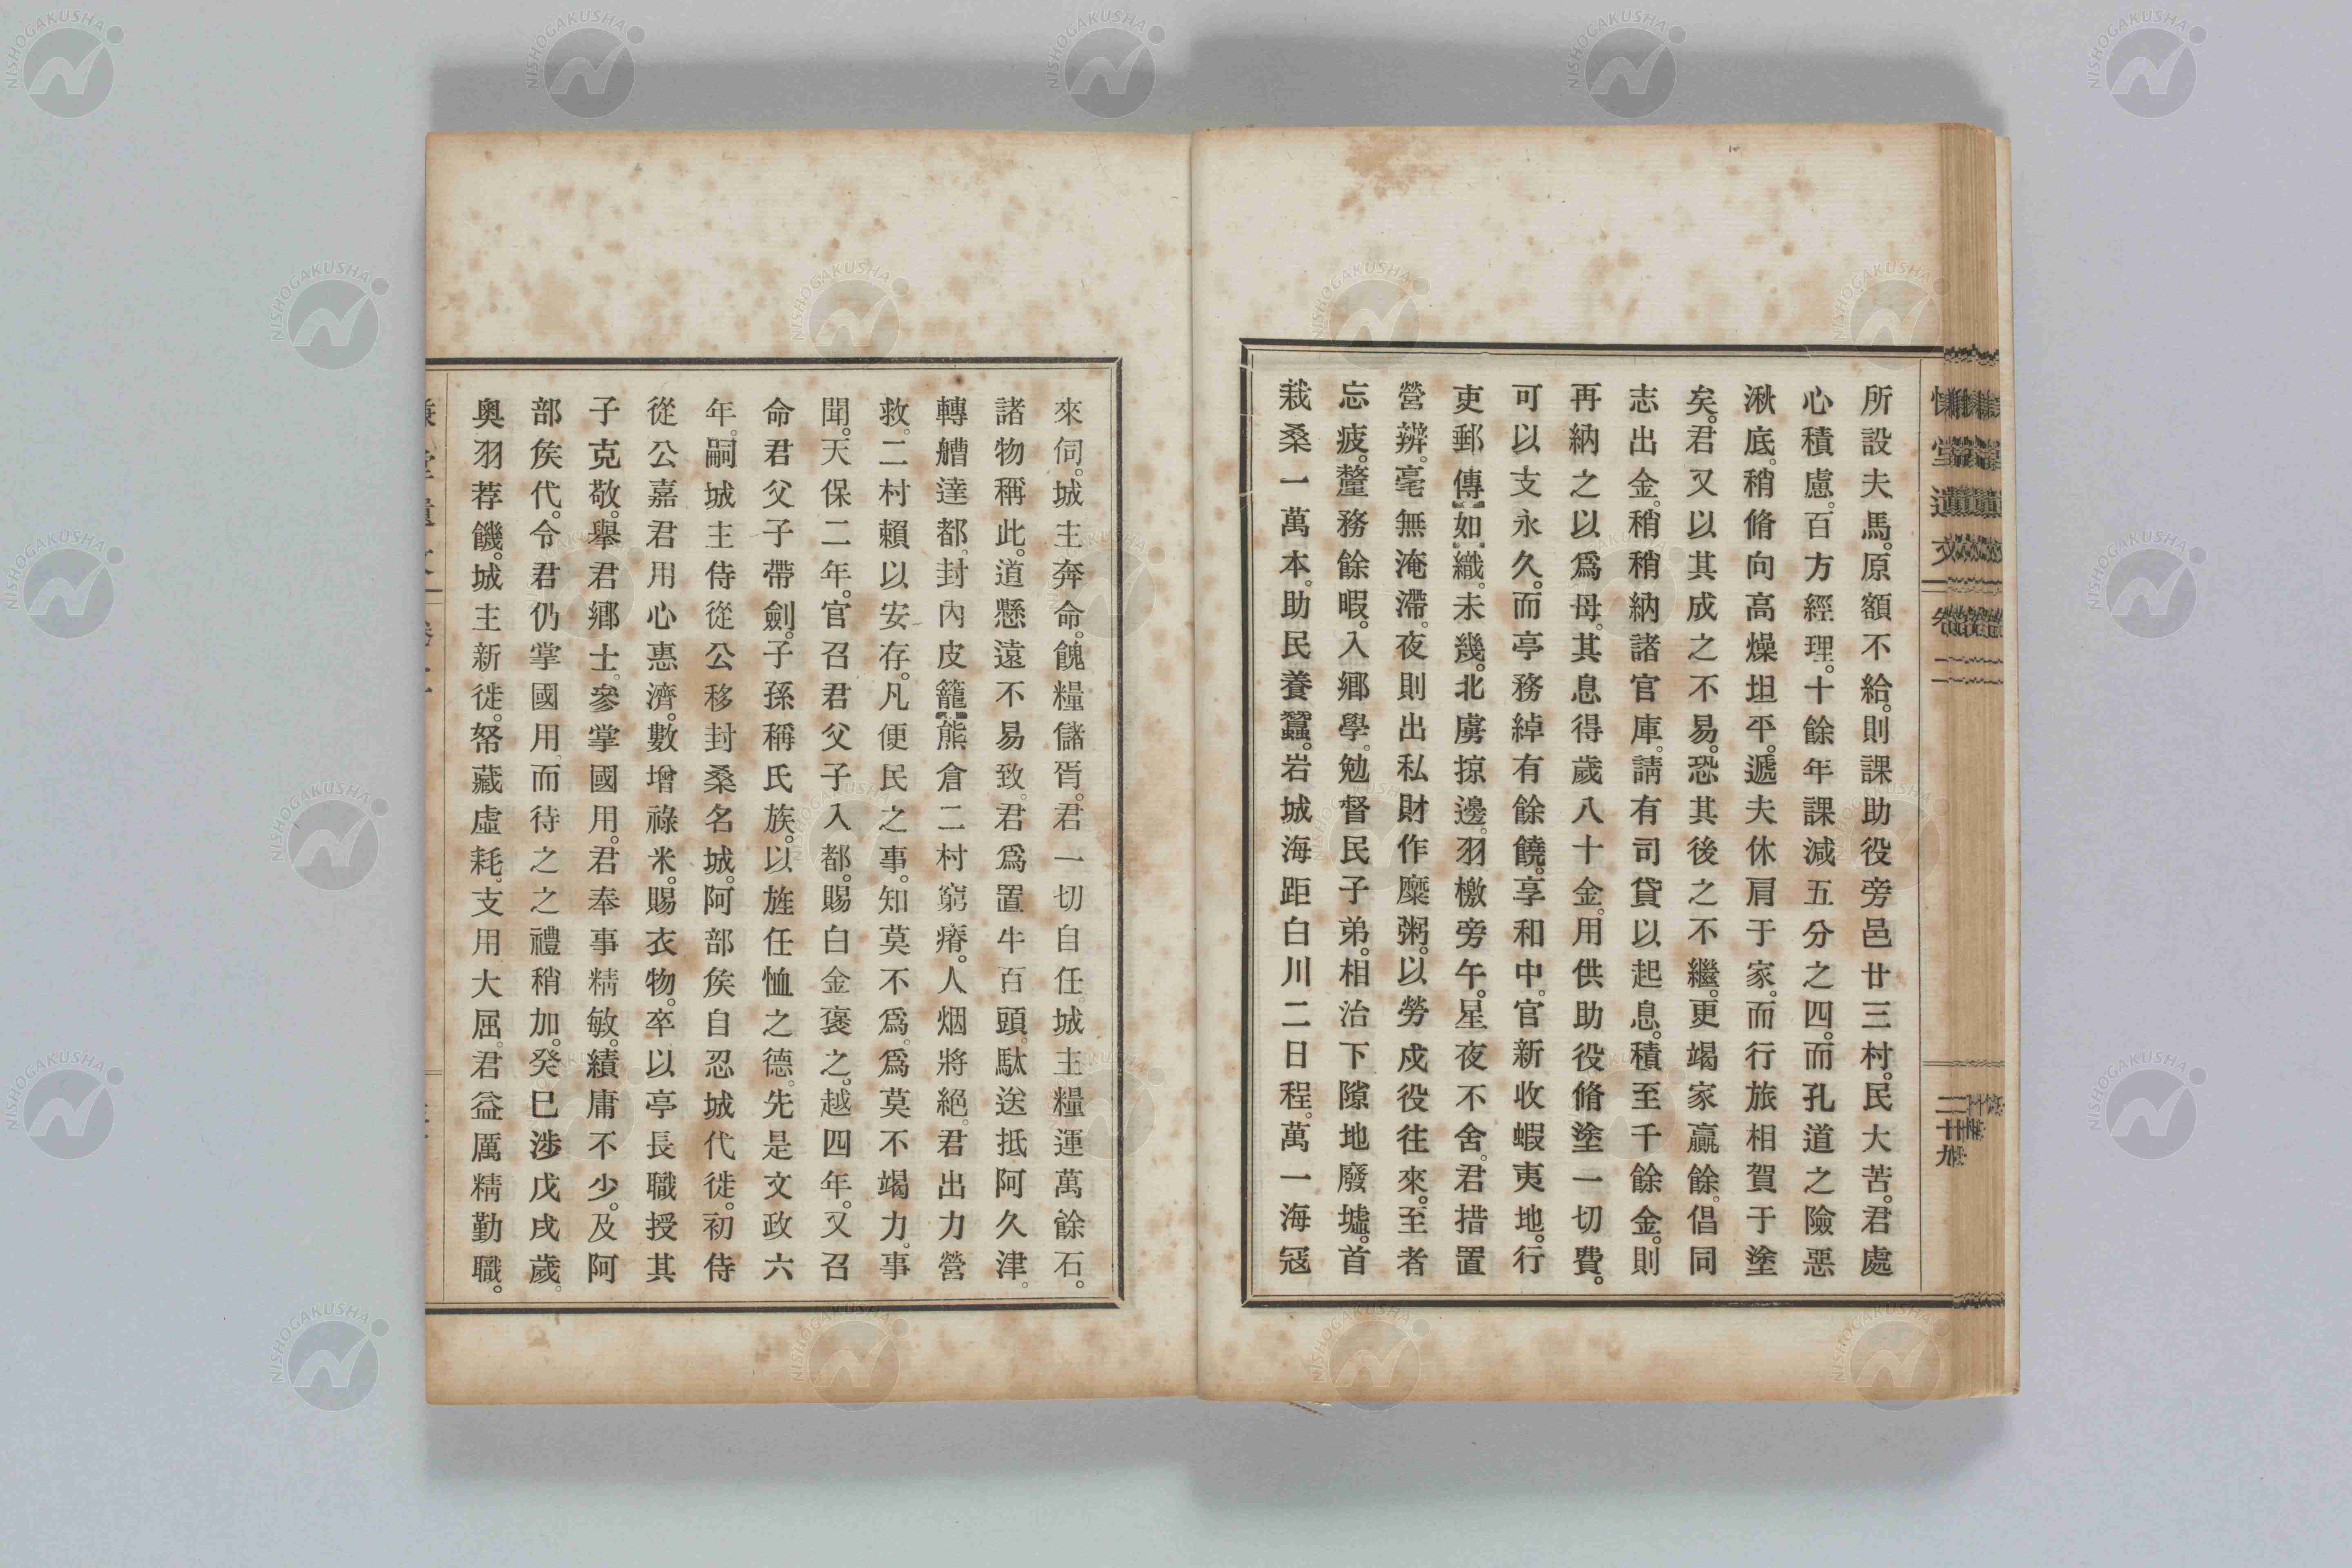 所設夫馬。原額不給。則課助役旁邑廿三村。民大苦。君處
心積慮。百方經理。十餘年課減五分之四。而孔道之險惡
湫底。稍脩向高燥坦平。遞夫休肩于家。而行旅相賀于塗
矣。君又以其成之不易。恐其後之不繼。更竭家贏餘。倡同
志出金。稍稍納諸官庫。請有司貸以起息。積至千餘金。則
再納之以爲母。其息得歲八十金。用供助役脩塗一切費。
可以支永久。而亭務綽有餘饒。享和中。官新收蝦夷地。行
吏郵傳如織。未幾。北虜掠邊。羽檄旁午。星夜不舍。君措置
營辨。毫無淹滯。夜則出私財作糜粥。以勞戍役往來。至者
忘疲。釐務餘暇。入鄉學。勉督民子弟。相治下隙地廢墟。首
栽桑一萬本。助民養蠶。岩城海距白川二日程。萬一海冦
來伺。城主奔命。餽糧儲胥。君一切自任。城主糧運萬餘石。
諸物稱此。道懸遠不易致。君爲置牛百頭。馱送抵阿久津。
轉艚達都。封內皮籠熊倉二村窮瘠。人烟將絕。君出力營
救。二村賴以安存。凡便民之事。知莫不爲。爲莫不竭力。事
聞。天保二年。官召君父子入都。賜白金褒之。越四年。又召
命君父子帶劍。子孫稱氏族。以旌任恤之德。先是文政六
年。嗣城主侍從公移封桑名城。阿部矦自忍城代徙。初侍
從公嘉君用心惠濟。數增祿米。賜衣物。卒以亭長職授其
子克敬。舉君鄉士。參掌國用。君奉事精敏。績庸不少。及阿
部矦代。令君仍掌國用。而待之之禮稍加。癸巳涉戊戌歲。
奥羽荐饑。城主新徙。帑藏虛耗。支用大屈。君益厲精勤職。
堂遺文
卷二
二十九
NISHOGAKUSHA